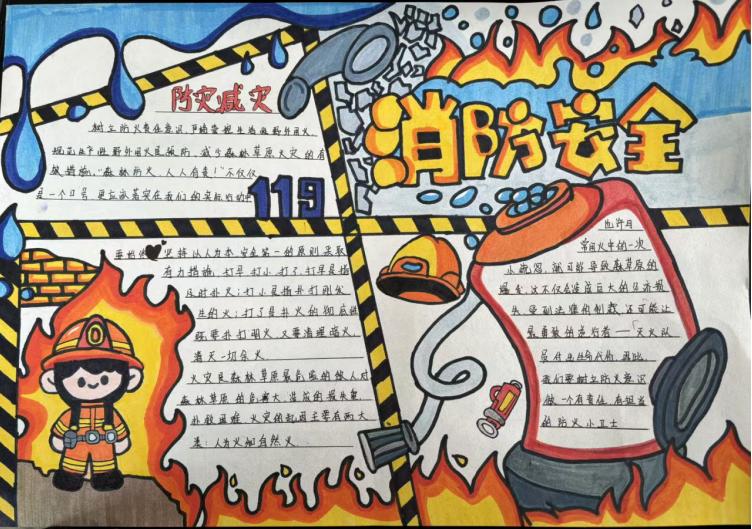 消防安全
防灾减灾
树立防火责任意识,严格管规生活及野外用火,
规范生产及野外用火及预防,减少森林草原火灾的有
效措施,"森林防火,人人有责!"不仅仅
是一个口号,更应该落实在我们的实际行动中
119
坚持以人为本安全第一的原则采取
有力措施,打早、打小、打了,打早是指
及时扑火;打小是指扑打刚发
生的火;打了是扑火的彻底性
既要扑打明火,又要清理暗火,
消灭一切余火
火灾是森林草原最危险的敌人对
森林草原的危害大,造成的损失重
扑救困难,火灾的起因主要有两大
类:人为火和自然火
也许用
常用火中的一次
小疏忽,就可能导致森草原的
爆火,这不仅会造成巨大的经济损
失,受到法律的制裁,还可能让
最勇敢的逆行者——灭火队
员付出生命代价,因此,
我们要树立防火意识
做一个有责任,有担当
的防火小卫士